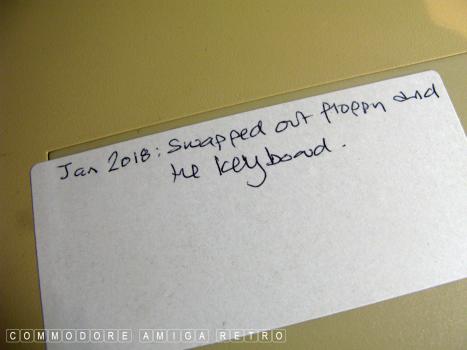 Jan 2018: Swapped out floppy and
the keyboard.
COMMODORE AMIGA RETRO